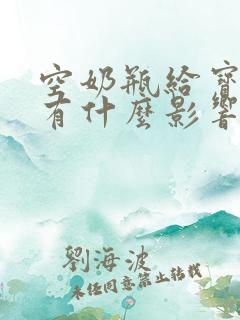 空奶瓶給寶
有什麼影響
劉海波
未经同意禁止转载